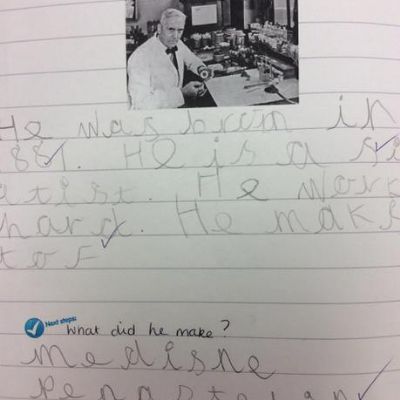 He was brorn in
1881. He is a si
atist. He work
hard. He make
tof
Next steps:
What did he make?
medisne
penastelan